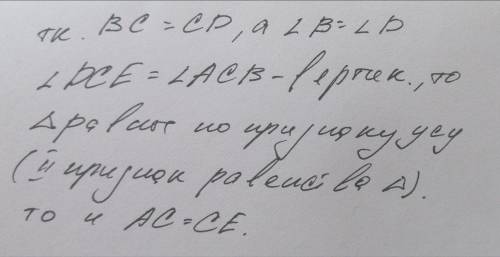 тк. BC = CD, а ∠B = ∠D
∠DCE = ∠ACB - вертик., то
△ равные по признаку усу
(II признак равенства △).
то и AC = CE.